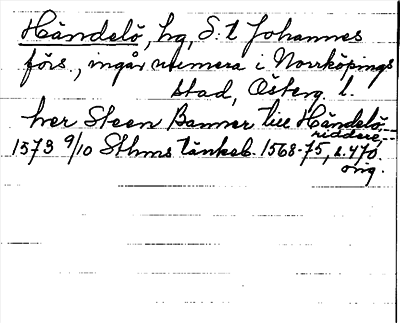 Händelö, hg, S:t Johannes
förs., ingår numera i Norrköpings
stad, Österg. l.
her Steen Banner till Händelö,
riddere,
1573 9/10 Sthms tänkeb. 1568-75, s. 470.
orig.